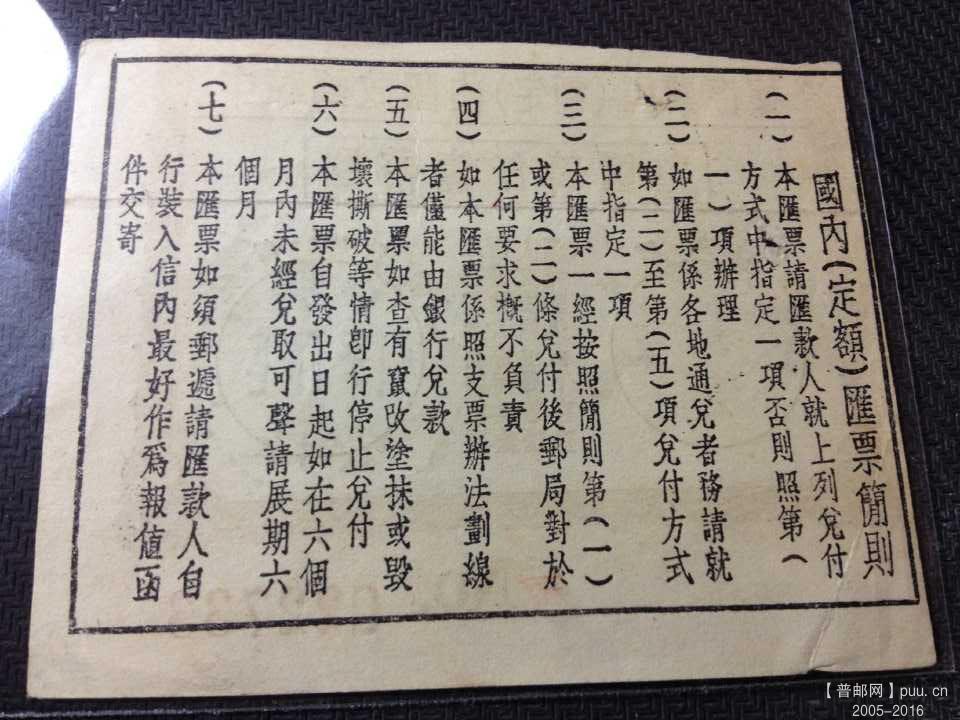 國內(定額)匯票簡則
(一) 本匯票請匯款人就上列兌付
方式中指定一項否則照第(
一)項辦理
(二) 如匯票係各地通兌者務請就
第(二)至第(五)項兌付方式
中指定一項
(三) 本匯票一經按照簡則第(一)
或第(二)條兌付後郵局對於
任何要求概不負責
(四) 如本匯票係照支票辦法劃線
者僅能由銀行兌款
(五) 本匯票如查有竄改塗抹或毀
壞撕破等情卽行停止兌付
(六) 本匯票自發出日起如在六個
月內未經兌取可聲請展期六
個月
(七) 本匯票如須郵遞請匯款人自
行裝入信內最好作爲報值函
件交寄
【普邮网】puu.cn
2005-2016